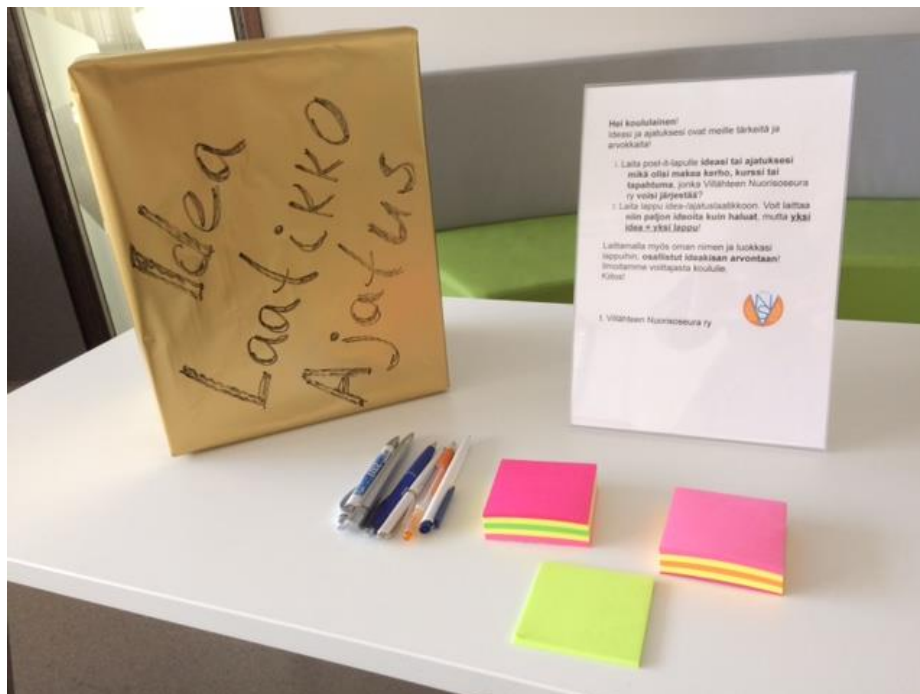 Idea
Laatikko
Ajatus
Hei koululainen!
Ideasi ja ajatuksesi ovat meille tärkeitä ja
arvokkaita!
1. Laita post-it-lapulle ideasi tai ajatuksesi
mikä olisi makea kerho, kurssi tai
tapahtuma, jonka Villähteen Nuorisoseura
ry voisi järjestää?
2. Laita lappu idea-/ajatuslaatikkoon. Voit laittaa
niin paljon ideoita kuin haluat, mutta yksi
idea = yksi lappu!
Laittamalla myös oman nimen ja luokkasi
lappuihin, osallistut ideakisan arvontaan!
Ilmoitamme voittajasta koululle.
Kiitos!
t. Villähteen Nuorisoseura ry